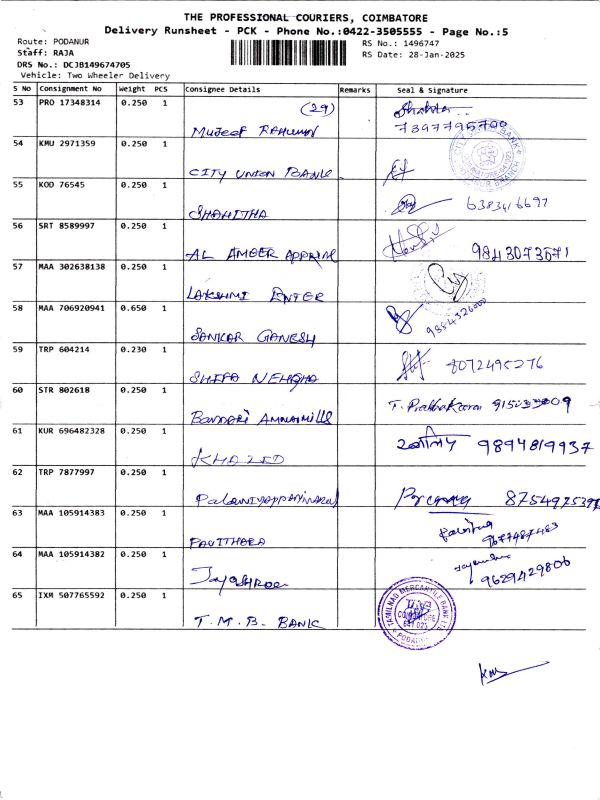 THE PROFESSIONAL COURIERS, COIMBATORE
Delivery Runsheet - PCK - Phone No.:0422-3505555 - Page No.:5
Route: PODANUR
Staff: RAJA
DRS No.: DCJB149674705
Vehicle: Two Wheeler Delivery
RS No.: 1496747
RS Date: 28-Jan-2025
S No Consignment No Weight PCS Consignee Details Remarks Seal & Signature
53 PRO 17348314 0.250 1 (29)
MUJEEF RAHUMAN 7397795700
54 KMU 2971359 0.250 1
CITY UNION BANK
55 KOD 76545 0.250 1
SHAHITHA 6383416697
56 SRT 8589997 0.250 1
AL AMEER APPRIM 9843073571
57 MAA 302638138 0.250 1
LAKSHMI ENTER
58 MAA 706920941 0.650 1
SANKAR GANESH
59 TRP 604214 0.230 1
SHIFA 8072495276
60 STR 802618 0.250 1
T. Prabhakaran
61 KUR 696482328 0.250 1
KHALED 9894819937
62 TRP 7877997 0.250 1
63 MAA 105914383 0.250 1
PAVITHARA 9677487483
64 MAA 105914382 0.250 1
Jayashree 9629429806
65 IXM 507765592 0.250 1
T.M.B. BANK
TAMILNAD MERCANTILE BANK LTD
COIMBATORE
641 023
PODANUR